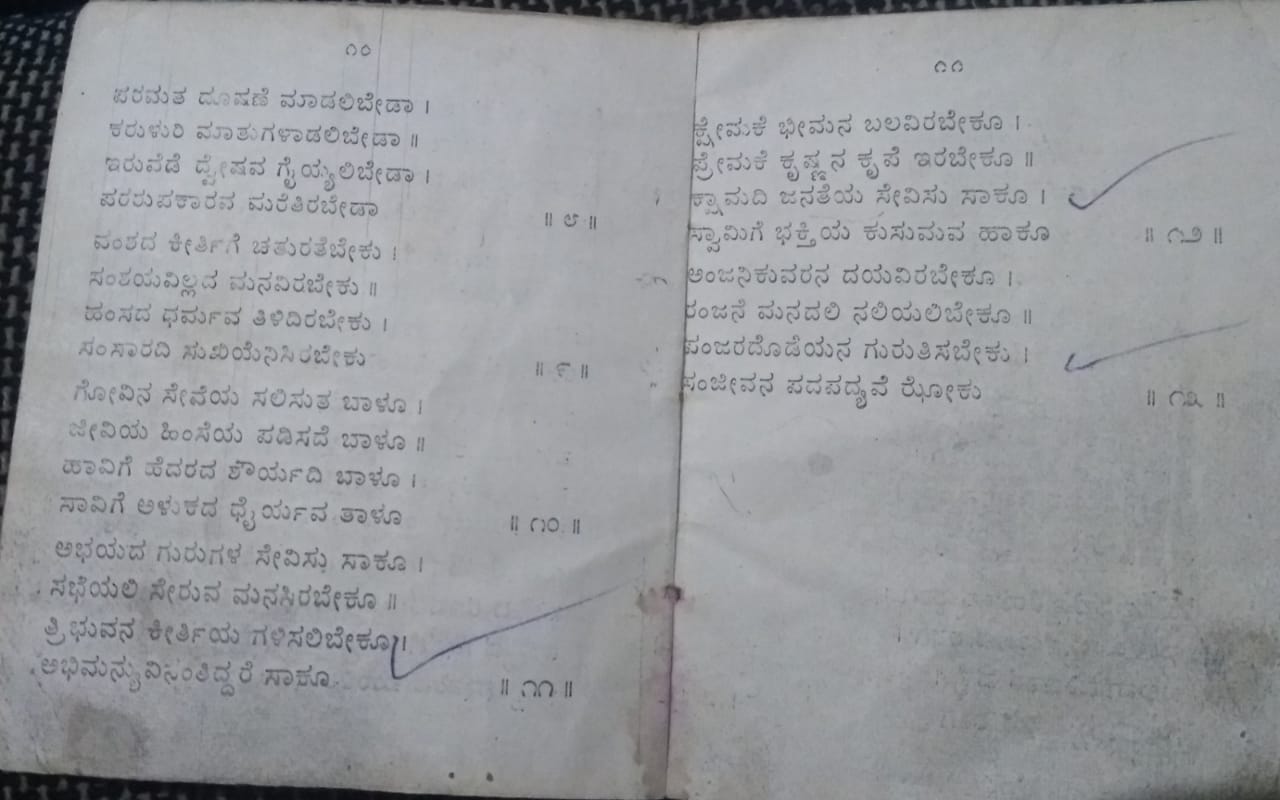 ೧೦
ಪರಮತ ದೂಷಣೆ ಮಾಡಲಿಬೇಡಾ ।
ಕರುಳುರಿ ಮಾತುಗಳಾಡಲಿಬೇಡಾ ॥
ಇರುವೆಡೆ ದ್ವೇಷವ ಗೈಯ್ಯಲಿಬೇಡಾ ।
ಪರರುಪಕಾರವ ಮರೆತಿರಬೇಡಾ ॥ ೮ ॥
ವಂಶದ ಕೀರ್ತಿಗೆ ಚತುರತೆಬೇಕು ।
ಸಂಶಯವಿಲ್ಲದ ಮನವಿರಬೇಕು ॥
ಹಂಸದ ಧರ್ಮವ ತಿಳಿದಿರಬೇಕು ।
ಸಂಸಾರದಿ ಸುಖಿಯೆನಿಸಿರಬೇಕು ॥ ೯ ॥
ಗೋವಿನ ಸೇವೆಯ ಸಲಿಸುತ ಬಾಳೂ ।
ಜೀವಿಯ ಹಿಂಸೆಯ ಪಡಿಸದೆ ಬಾಳೂ ॥
ಹಾವಿಗೆ ಹೆದರದ ಶೌರ್ಯದಿ ಬಾಳೂ ।
ಸಾವಿಗೆ ಅಳುಕದ ಧೈರ್ಯವ ತಾಳೂ ॥ ೧೦ ॥
ಅಭಯದ ಗುರುಗಳ ಸೇವಿಸು ಸಾಕೂ ।
ಸಭೆಯಲಿ ಸೇರುವ ಮನಸಿರಬೇಕೂ ॥
ತ್ರಿಭುವನ ಕೀರ್ತಿಯ ಗಳಿಸಲಿಬೇಕೂ ।
ಅಭಿಮನ್ಯುವಿನಂತಿದ್ದರೆ ಸಾಕೂ ॥ ೧೧ ॥
೧೧
ಕ್ಷೇಮಕೆ ಭೀಮನ ಬಲವಿರಬೇಕೂ ।
ಪ್ರೇಮಕೆ ಕೃಷ್ಣನ ಕೃಪೆ ಇರಬೇಕೂ ॥
ಕ್ಷಾಮದಿ ಜನತೆಯ ಸೇವಿಸು ಸಾಕೂ ।
ಸ್ವಾಮಿಗೆ ಭಕ್ತಿಯ ಕುಸುಮವ ಹಾಕೂ ॥ ೧೨ ॥
ಅಂಜನಿಕುವರನ ದಯವಿರಬೇಕೂ ।
ರಂಜನೆ ಮನದಲಿ ನಲಿಯಲಿಬೇಕೂ ॥
ಪಂಜರದೊಡೆಯನ ಗುರುತಿಸಬೇಕು ।
ಸಂಜೀವನ ಪದಪದ್ಯವೆ ಝೋಕು ॥ ೧೩ ॥